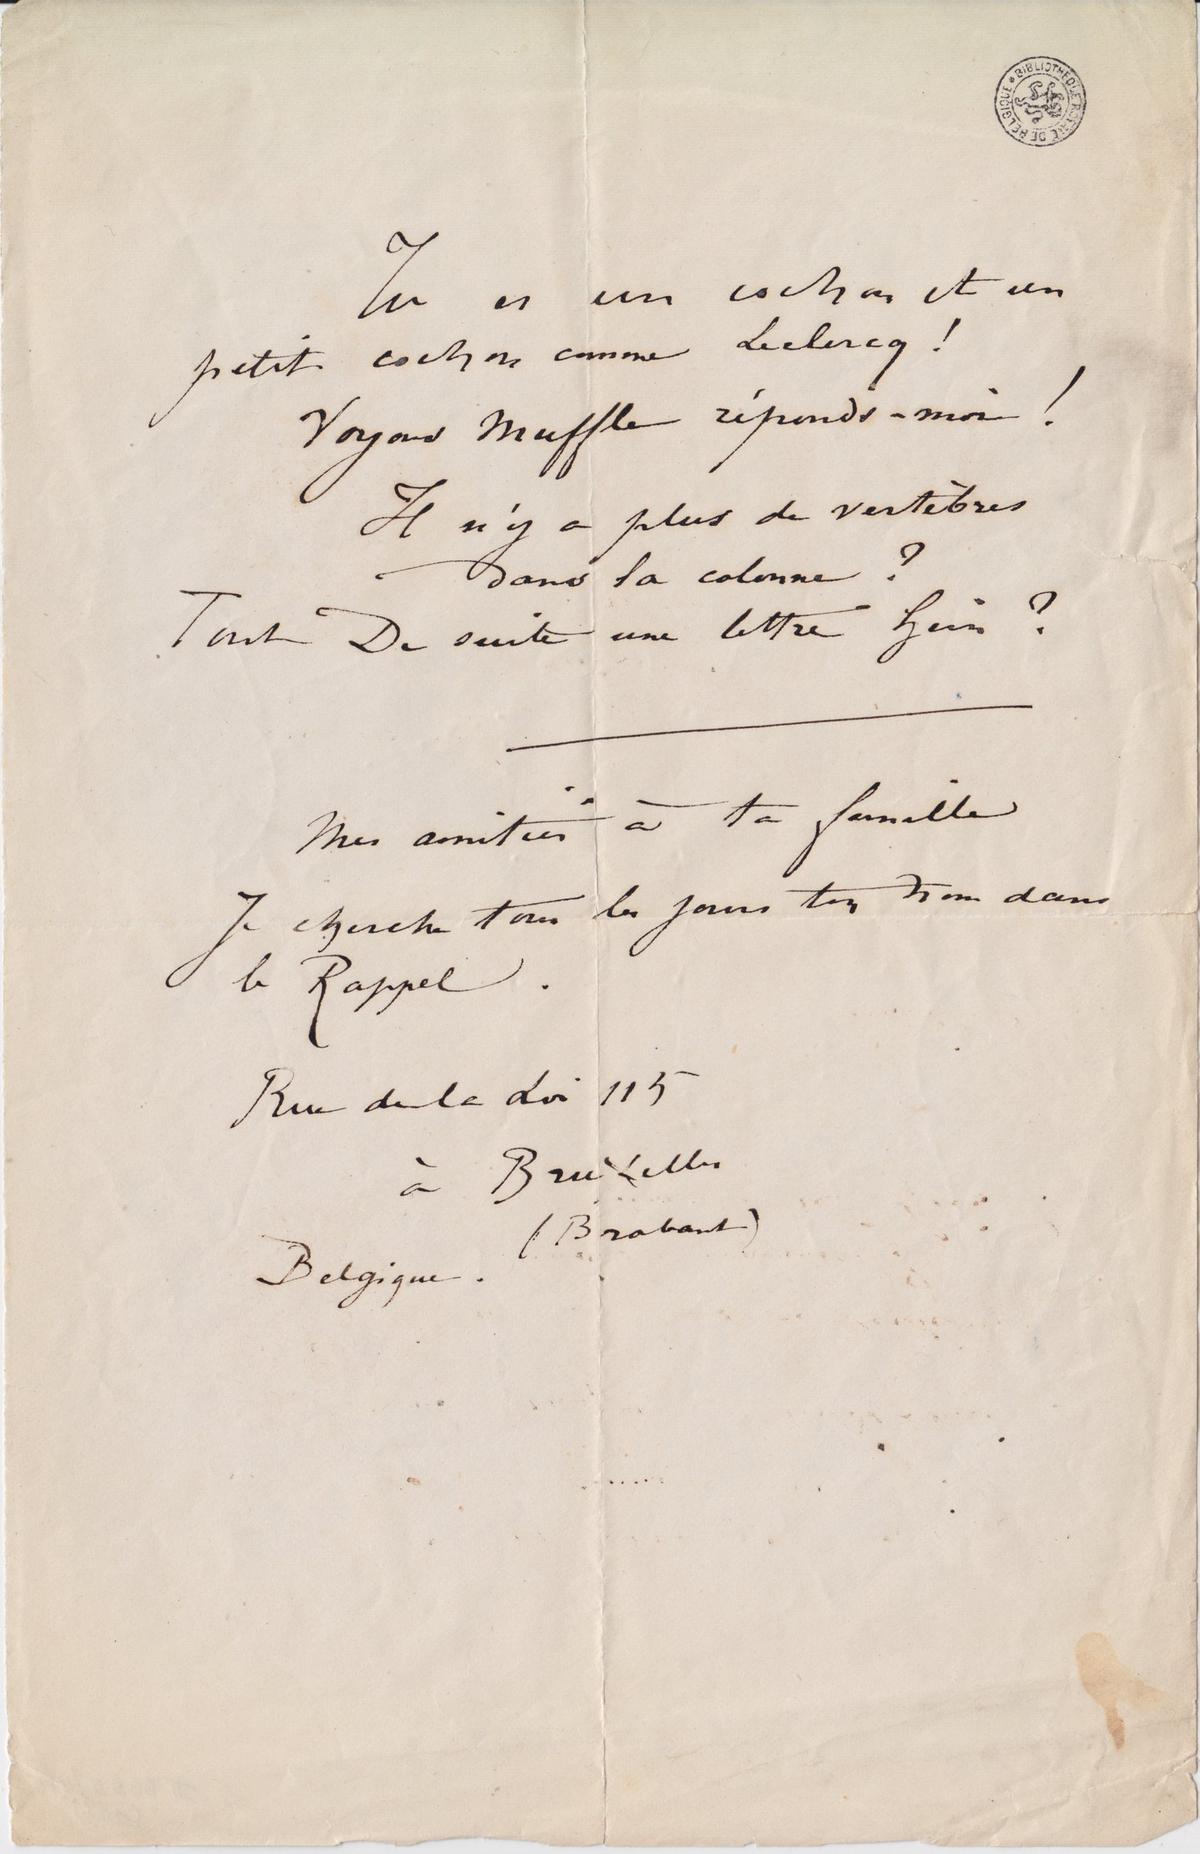 BIBLIOTHÈQUE ROYALE DE BELGIQUE
Tu es un cochon et un
petit cochon comme Leclercq !
Voyons Muffle réponds-moi !
Il n'y a plus de vertèbres
dans la colonne ?
Tout De suite une lettre hein ?
Mes amitiés à ta famille
Je cherche tous les jours ton nom dans
le Rappel .
Rue de la Loi 115
à Bruxelles
(Brabant)
Belgique .